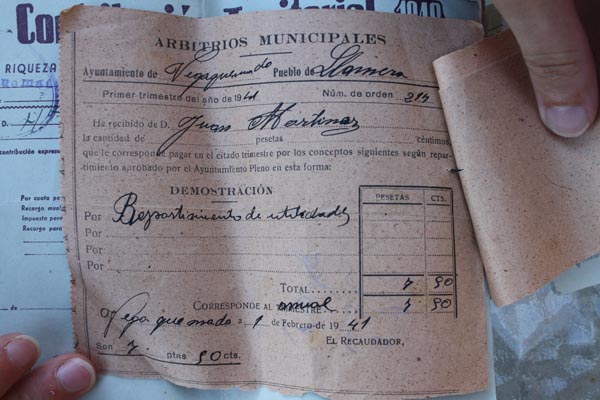 Contribución Territorial 1940
RIQUEZA
D.
contribución expresa
Por cuota pa
Recargo mu
Impuesto pa
Recargo para
ARBITRIOS MUNICIPALES
Ayuntamiento de Vegaquemada Pueblo de Llamera
Primer trimestre del año de 1941 Núm. de orden 214
He recibido de D. Juan Martinez
la cantidad de pesetas céntimos
que le corresponde pagar en el citado trimestre por los conceptos siguientes según repar-
timiento aprobado por el Ayuntamiento Pleno en esta forma:
DEMOSTRACIÓN
PESETAS CTS.
Por Repartimiento de utilidades
Por
Por
Por
TOTAL 7 90
CORRESPONDE AL TRIMESTRE anual 7 90
Vegaquemada a 1 de Febrero de 1941
Son 7 ptas 90 cts.
EL RECAUDADOR,